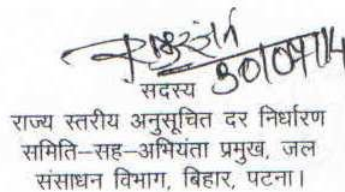 सदस्य
राज्य स्तरीय अनुसूचित दर निर्धारण
समिति–सह–अभियंता प्रमुख, जल
संसाधन विभाग, बिहार, पटना।